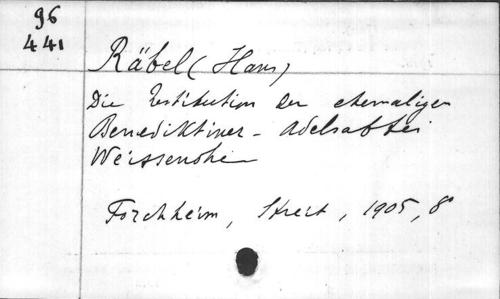 96
441
Räbel (Hans)
Die Restitution der ehemaligen
Benediktiner - Adelsabtei
Weissenohe
Forchheim, Streit, 1905, 8°